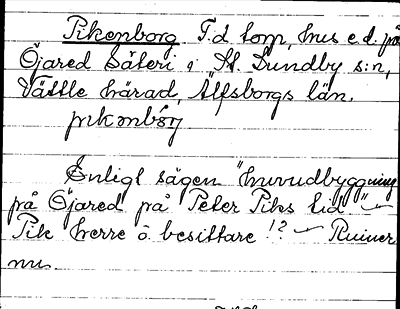 Pikenborg F.d torp, hus e.d. på
Öjared Säteri i St. Lundby s:n,
Vättle härad, Älfsborgs län.
pikənbȯrj
Enligt sägen "huvudbyggning
på Öjared på Peter Piks tid" –
Pik herre o. besittare !? – Ruiner
nu.